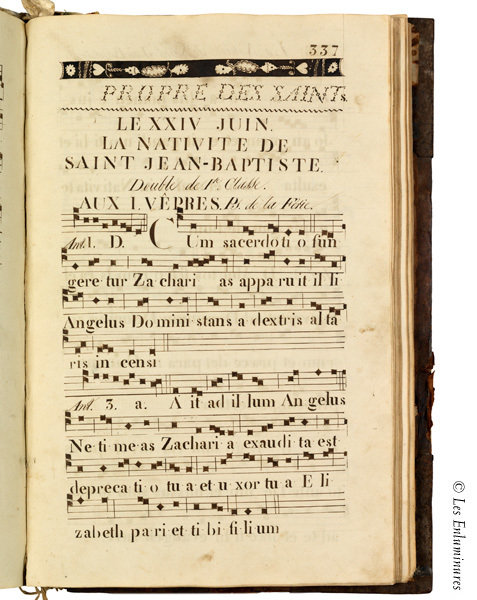 337
PROPRE DES SAINTS.
LE XXIV JUIN.
LA NATIVITE DE
SAINT JEAN-BAPTISTE.
Double de 1re Classe.
AUX I. VÊPRES. Ps. de la Férie.
Ant. 1. D. Cum sacerdoti o fun
gere tur Za chari as appa ru it il li
Angelus Do mi ni stans a dextris al ta
ris in censi
Ant. 3. a. A it ad il lum An gelus
Ne ti me as Zachari a exaudi ta est
depreca ti o tu a et u xor tu a E li
zabeth pa ri et ti bi fi li um
© Les Enluminures